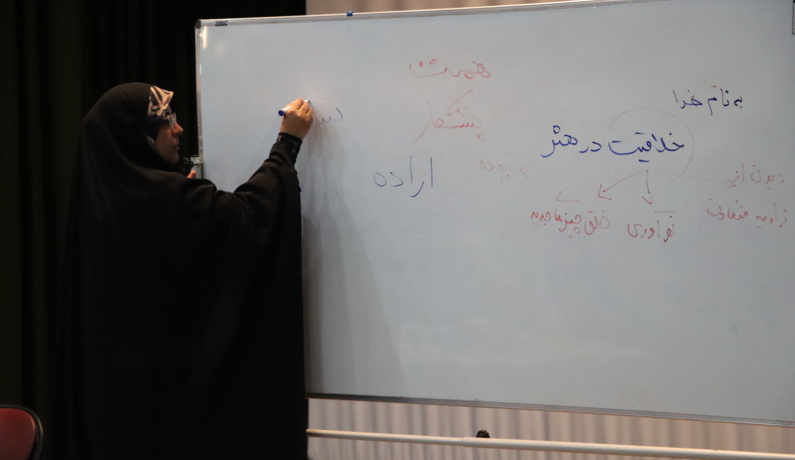 به نام خدا
خلاقیت در هنر
دیدن از
زاویه متفاوت
نوآوری
خلق چیزها جدید
همت
پشتکار
اراده